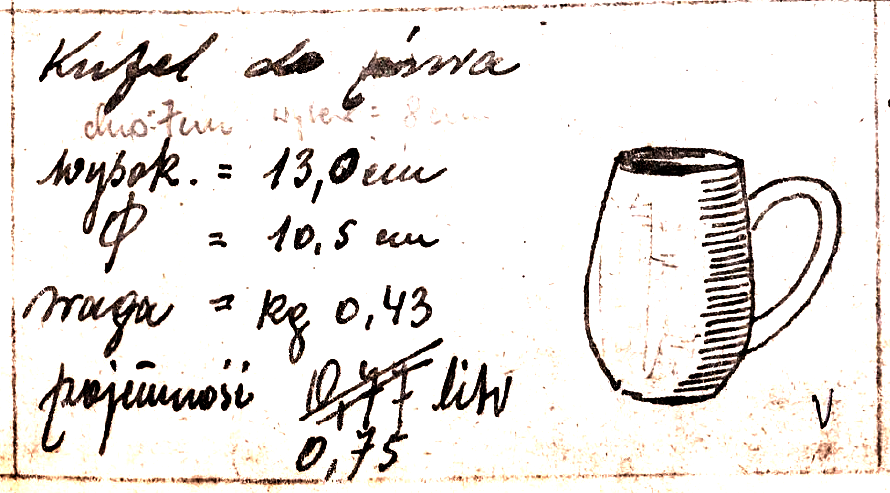 Kufel do piwa
dno = 7 cm wylew = 8 cm
wysok. = 13,0 cm
φ = 10,5 cm
waga = kg 0,43
pojemność 0,77 litr
0,75
V